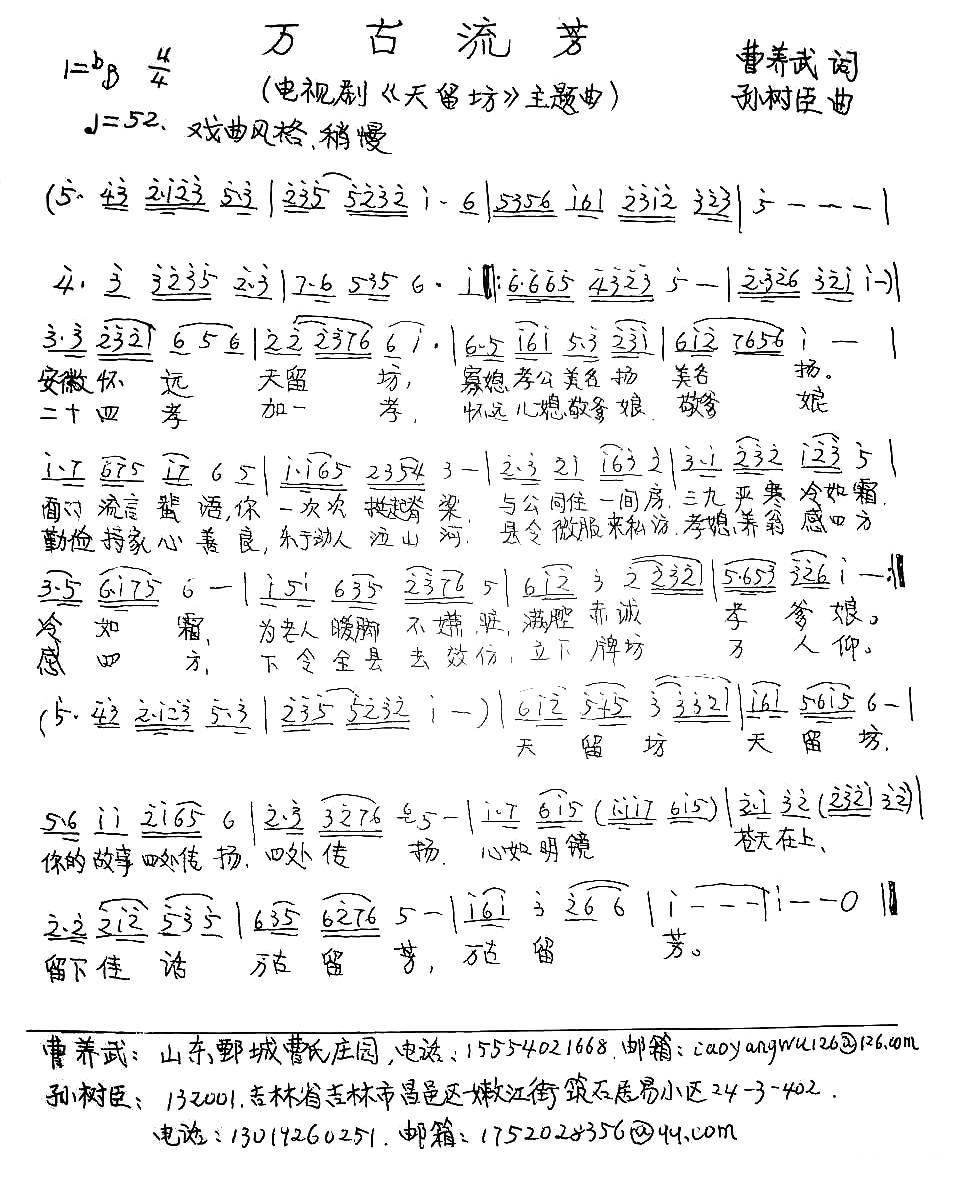 万古流芳
1=bB 4/4
(电视剧《天留坊》主题曲)
曹养武 词
孙树臣 曲
♩=52. 戏曲风格、稍慢
(5· 43 2·123 5·3 | 235 5232 i· 6 | 5356 i61 2312 323 | 5 - - - |
4· 3 3235 2·3 | 7·6 535 6· i ‖: 6·665 4323 5 - | 2·326 321 i -) |
3·3 2321 6 5 6 | 22 2376 6 i· | 6·5 i6i 5·3 23i | 6i2 7656 i - |
安徽怀远 天留坊, 寡媳孝公美名扬 美名扬。
二十四孝 加一孝, 怀远儿媳敬爹娘 敬爹娘
i·7 675 i7 6 5 | i·i65 2354 3 - | 2·3 21 i63 2 | 3·i 232 i23 5 |
面对流言蜚语,你一次次挺起脊梁, 与公同住一间房,三九严寒冷如霜.
勤俭持家心善良,乐于助人泣山河. 县令微服来私访,孝媳养翁感四方
3·5 6·i75 6 - | i 5i 635 2376 5 | 6i2 3 2 232 | 5·653 326 i - :‖
冷如霜, 为老人暖脚不嫌脏, 满腔赤诚孝爹娘。
感四方, 下令全县去效仿,立下牌坊万人仰。
(5· 43 2·123 5·3 | 235 5232 i -) | 6i2 545 3 3321 | i6i 5·6i5 6 - |
天留坊 天留坊.
5·6 ii 2i65 6 | 2·3 3276 5 - | i·7 6i5 (i·ii7 6i5) | 2·i 32 (2321 32) |
你的故事四处传扬. 四处传扬. 心如明镜 苍天在上、
2·2 2i2 535 | 635 6276 5 - | i6i 3 26 6 | i - - - | i - - 0 ‖
留下佳话 万古留芳, 万古留芳。
曹养武: 山东鄄城曹氏庄园,电话:15554021668.邮箱:caoyangwu126@126.com
孙树臣: 132001.吉林省吉林市昌邑区嫩江街筑石居易小区24-3-402.
电话:13019260251. 邮箱:1752028356@qq.com